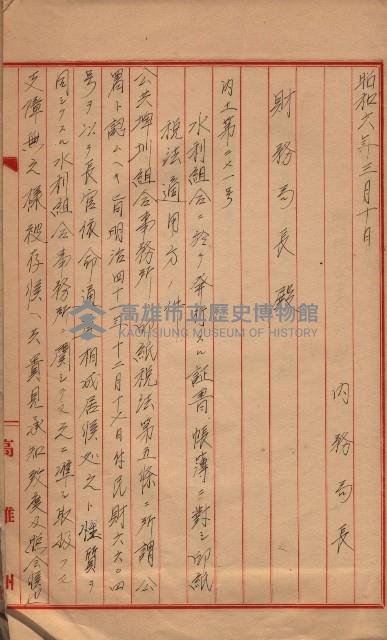 昭和六年三月十日
内務局長
財務局長殿
内土第二八一号
水利組合ニ於テ発行スル証書、帳簿ニ対シ印紙
税法適用方ノ件
公共埤圳組合事務所ハ印紙税法第五條ニ所謂公
署ト認ムヘキ旨明治四十 年十二月十 日付民財六六〇四
号ヲ以テ長官依命通 相成居候処之ト性質ヲ
同シクスル水利組合事務所ニ関シテモ之ニ準シ取扱フモ
支障無之様被存候ヘ共貴見承知致度及照会候也
高雄州
高雄市立歷史博物館
KAOHSIUNG MUSEUM OF HISTORY